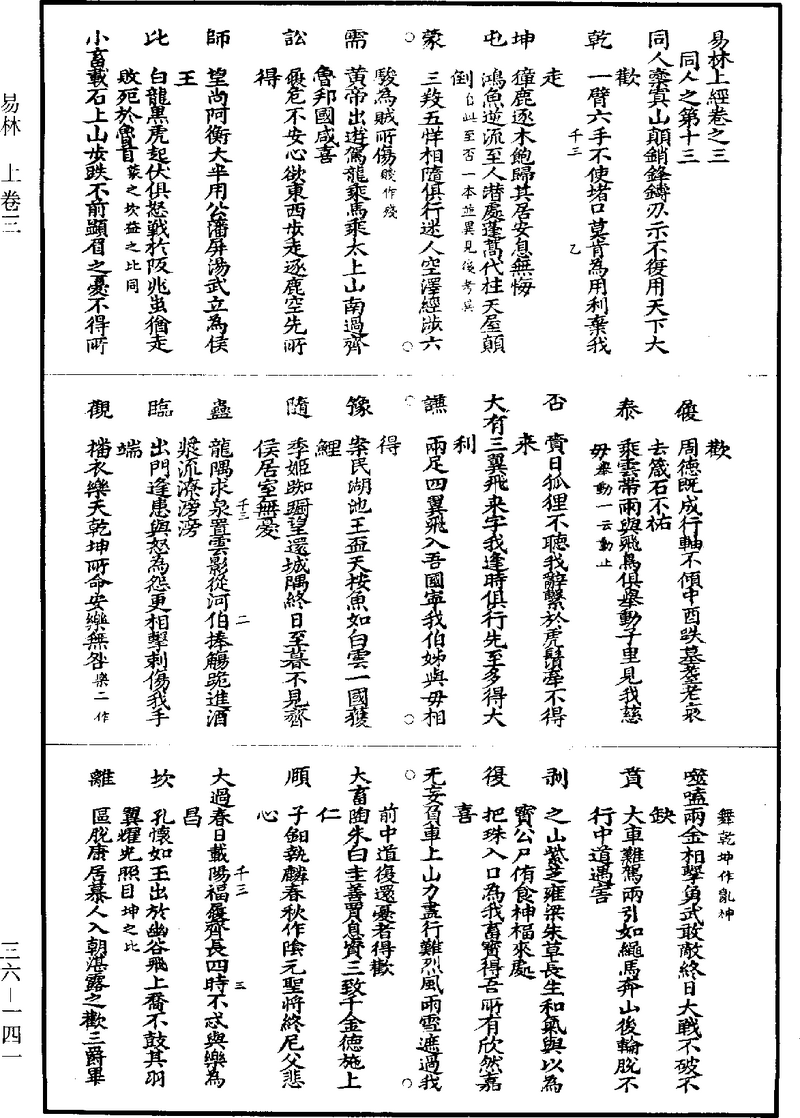 易林上經卷之三
同人之第十三
同人豪真山顛銷鋒鑄刃示不復用天下大
歡
乾 一臂六手不使堵口莫肯為用利棄我
走
千三 乙
坤 獐鹿逐木飽歸其居安息無悔
屯 鴻魚逆流至人潛處蓬蒿代柱天屋顛
倒 自此至否一本並異見後考異
蒙 三羖五牂相隨俱行迷人空澤經涉六
駿為賊所傷 駿作後
需 黃帝出遊駕龍乘馬乘太上山南過齊
魯邦國咸喜
訟 履危不安心欲東西步走逐鹿空先所
得
師 望尚阿衡大半用公藩屏湯武立為侯
王
比 白龍黑虎起伏俱怒戰於阪兆蚩猶走
敗死於魯首 蒙之坎益之比同
小畜載石上山步跌不前顰眉之憂不得所
歡
履 周德既成行軸不傾中酉跌墓耄老衰
去箴石不祐
泰 乘雲帶雨與飛鳥俱舉動千里見我慈
母 舉動一云動止
否 賣日狐狸不聽我辭繫於虎鬚牽不得
來
大有三翼飛來字我逢時俱行先至多得大
利
謙 兩足四翼飛入吾國寧我伯姊與母相
得
豫 案民湖池王盃天桉魚如白雲一國獲
鯉
隨 季姬踟躕望還城隅終日至暮不見齊
侯居室無憂
蠱 龍隅求泉置雲影從河伯捧觴跪進酒
漿流潦滂滂
千三 二
臨 出門逢患與怒為怨更相擊刺傷我手
端
觀 擋衣樂天乾坤所命安樂無咎 樂二作
舞乾坤作亂神
噬嗑兩金相擊勇武敢敵終日大戰不破不
缺
賁 大車難駕兩引如繩馬奔山後輪脫不
行中道遇害
剝 之山紫芝雍梁朱草長生和氣與以為
寶公尸侑食神福來處
復 把珠入口為我畜寶得吾所有欣然嘉
喜
无妄負車上山力盡行難烈風雨雪遮過我
前中道復還憂者得歡
大畜陶朱白圭善賈息寶三致千金德施上
仁
頤 子鉏執麟春秋作陰元聖將終尼父悲
心
大過春日載陽福履齊長四時不忒與樂為
昌
千三 三
坎 孔懷如玉出於幽谷飛上喬木鼓其羽
翼耀光照目 坤之比
離 區脫康居慕人入朝湛露之歡三爵畢
易林 上卷三
三六—一四一